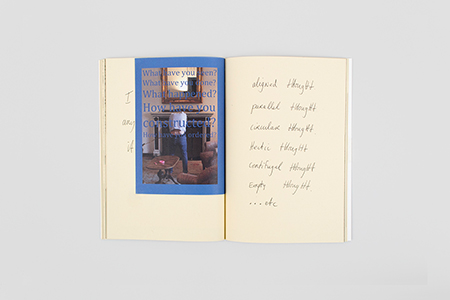 I
any
it
What have you seen?
What have you done?
What
How have you
constructed?
ordered?
aligned thought
parallel thought
circular thought
Hectic thought
centrifugal thought
Empty thought.
... etc